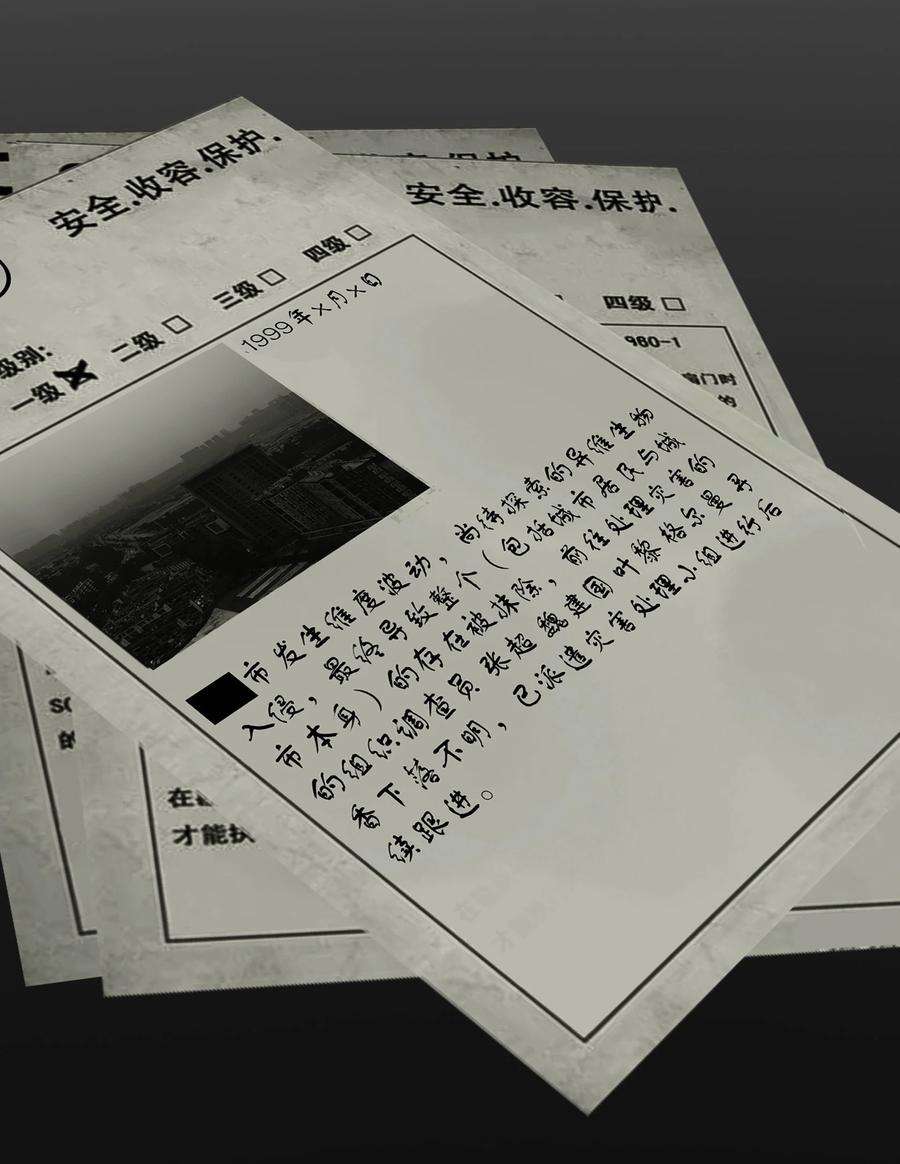 安全.收容.保护.
级别:
一级 二级 三级 四级
1999年×月×日
市发生维度波动，尚待探索的异维生物
入侵，最终导致整个（包括城市居民与城
市本身）的存在被抹除，前往处理灾害的
的组织调查员 张超 魏建国 叶黎 格尔曼 寻
香下落不明，已派遣灾害处理小组进行后
续跟进。
安全.收容.保护.
四级
980-1
窗门时
的
的
在
才能执